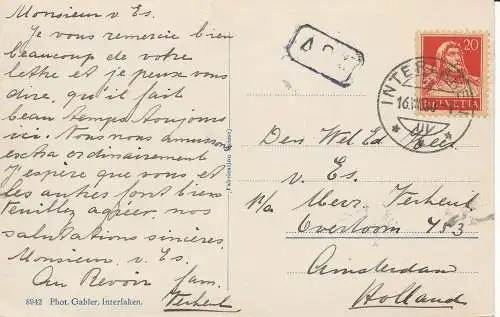 Monsieur v. Es.
Je vous remercie bien
beaucoup de votre
lettre et je peux vous
dire, qu'il fait
beau temps toujours
ici. Nous nous amusons
extra ordinairement
J'espère que vous et
les autres font bien
Veuillez agréer, nos
salutations sincères,
Monsieur v. Es.
Au Revoir fam.
Terheut
8942 Phot. Gabler, Interlaken.
20
HELVETIA
INTER
16.
Den Wel Ed Heer
v. Es.
p/a Mevr. Terheut
Overtoom 453
Amsterdam
Holland